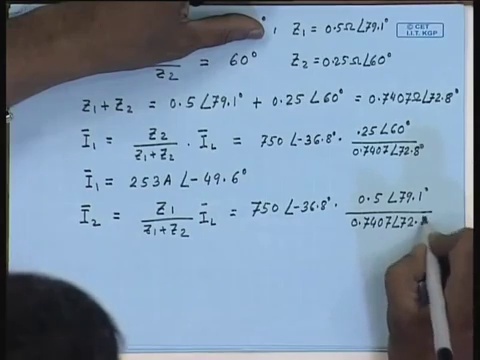 , Z₁ = 0.5Ω∠79.1°
© CET
I.I.T. KGP
Z₂ = 60° Z₂ = 0.25Ω∠60°
Z₁ + Z₂ = 0.5∠79.1° + 0.25∠60° = 0.7407Ω∠72.8°
Ī₁ = Z₂/(Z₁+Z₂) · Ī_L = 750∠-36.8° · .25∠60°/0.7407∠72.8°
Ī₁ = 253A∠-49.6°
Ī₂ = Z₁/(Z₁+Z₂) Ī_L = 750∠-36.8° · 0.5∠79.1°/0.7407∠72.